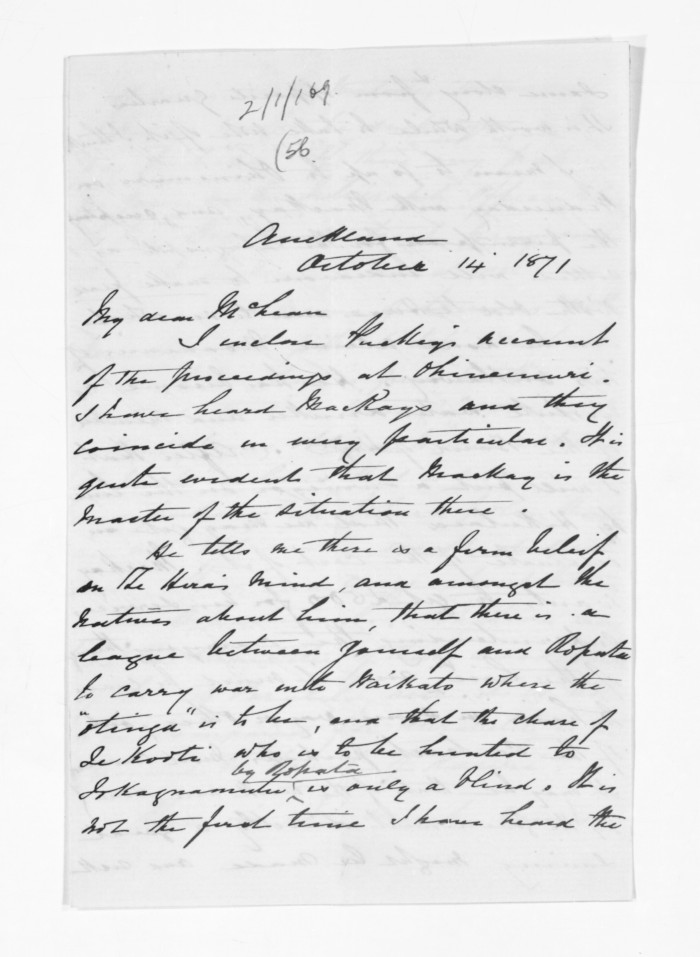 2/1/169
(56.
Auckland
October 14 1871
My dear McLean
I enclose Puckey's account
of the proceedings at Ohinemuri.
I have heard MacKays and they
coincide in every particular. It is
quite evident that Mackay is the
Master of the situation there.
He tells me there is a firm belief
in Te Hira's mind, and amongst the
Natives about him, that there is a
league between yourself and Ropata
to carry war into Waikato where the
"otinga" is to be, and that the chase of
Te Kooti who is to be hunted to
by Ropata
is only a blind. It is
not the first time I have heard the